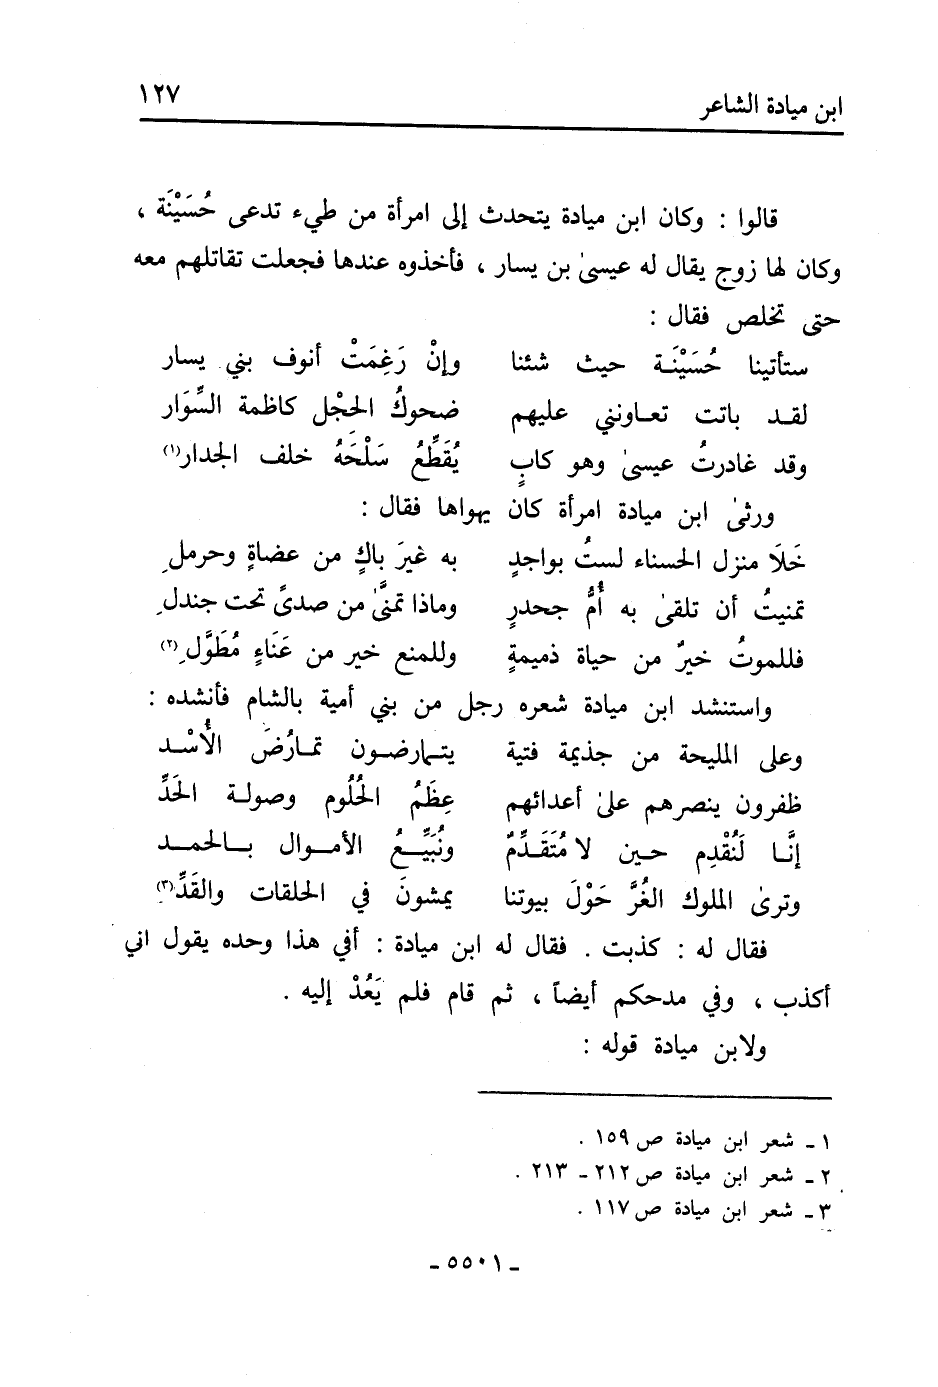 ابن ميادة الشاعر ١٢٧
قالوا : وكان ابن ميادة يتحدث إلى امرأة من طيء تدعى حُسَيْنَة ،
وكان لها زوج يقال له عيسىٰ بن يسار ، فأخذوه عندها فجعلت تقاتلهم معه
حتى تخلص فقال :
ستأتينا حُسَيْنَة حيث شئنا وإنْ رَغِمَتْ أنوف بني يسار
لقد باتت تعاونني عليهم ضحوكُ الحجْل كاظمة السِّوَار
وقد غادرتُ عيسىٰ وهو كابٍ يُقَطِّعُ سَلْحَهُ خلف الجدار(١)
ورثىٰ ابن ميادة امرأة كان يهواها فقال :
خَلَا منزل الحسناء لستُ بواجدٍ به غيرَ باكٍ من عضاةٍ وحرملِ
تمنيتُ أن تلقىٰ به أُمُّ جحدرٍ وماذا تمنَّىٰ من صدىً تحت جندلِ
فللموتُ خيرٌ من حياة ذميمةٍ وللمنع خير من عَنَاءٍ مُطَوَّلِ(٢)
واستنشد ابن ميادة شعره رجل من بني أمية بالشام فأنشده :
وعلى المليحة من جذيمة فتية يتمارضون تمارُضَ الأُسْد
ظفرون ينصرهم علىٰ أعدائهم عِظَمُ الحُلُوم وصولة الحَدِّ
إنَّا لَنُقْدِم حين لا مُتَقَدِّمٌ ونُبَيِّعُ الأموال بالحمد
وترىٰ الملوك الغُرَّ حَوْلَ بيوتنا يمشونَ في الحلقات والقَدِّ(٣)
فقال له : كذبت . فقال له ابن ميادة : أفي هذا وحده يقول اني
أكذب ، وفي مدحكم أيضاً ، ثم قام فلم يَعُدْ إليه .
ولابن ميادة قوله :
١ ـ شعر ابن ميادة ص ١٥٩ .
٢ ـ شعر ابن ميادة ص ٢١٢ ـ ٢١٣ .
٣ ـ شعر ابن ميادة ص ١١٧ .
ـ ٥٥٠١ ـ